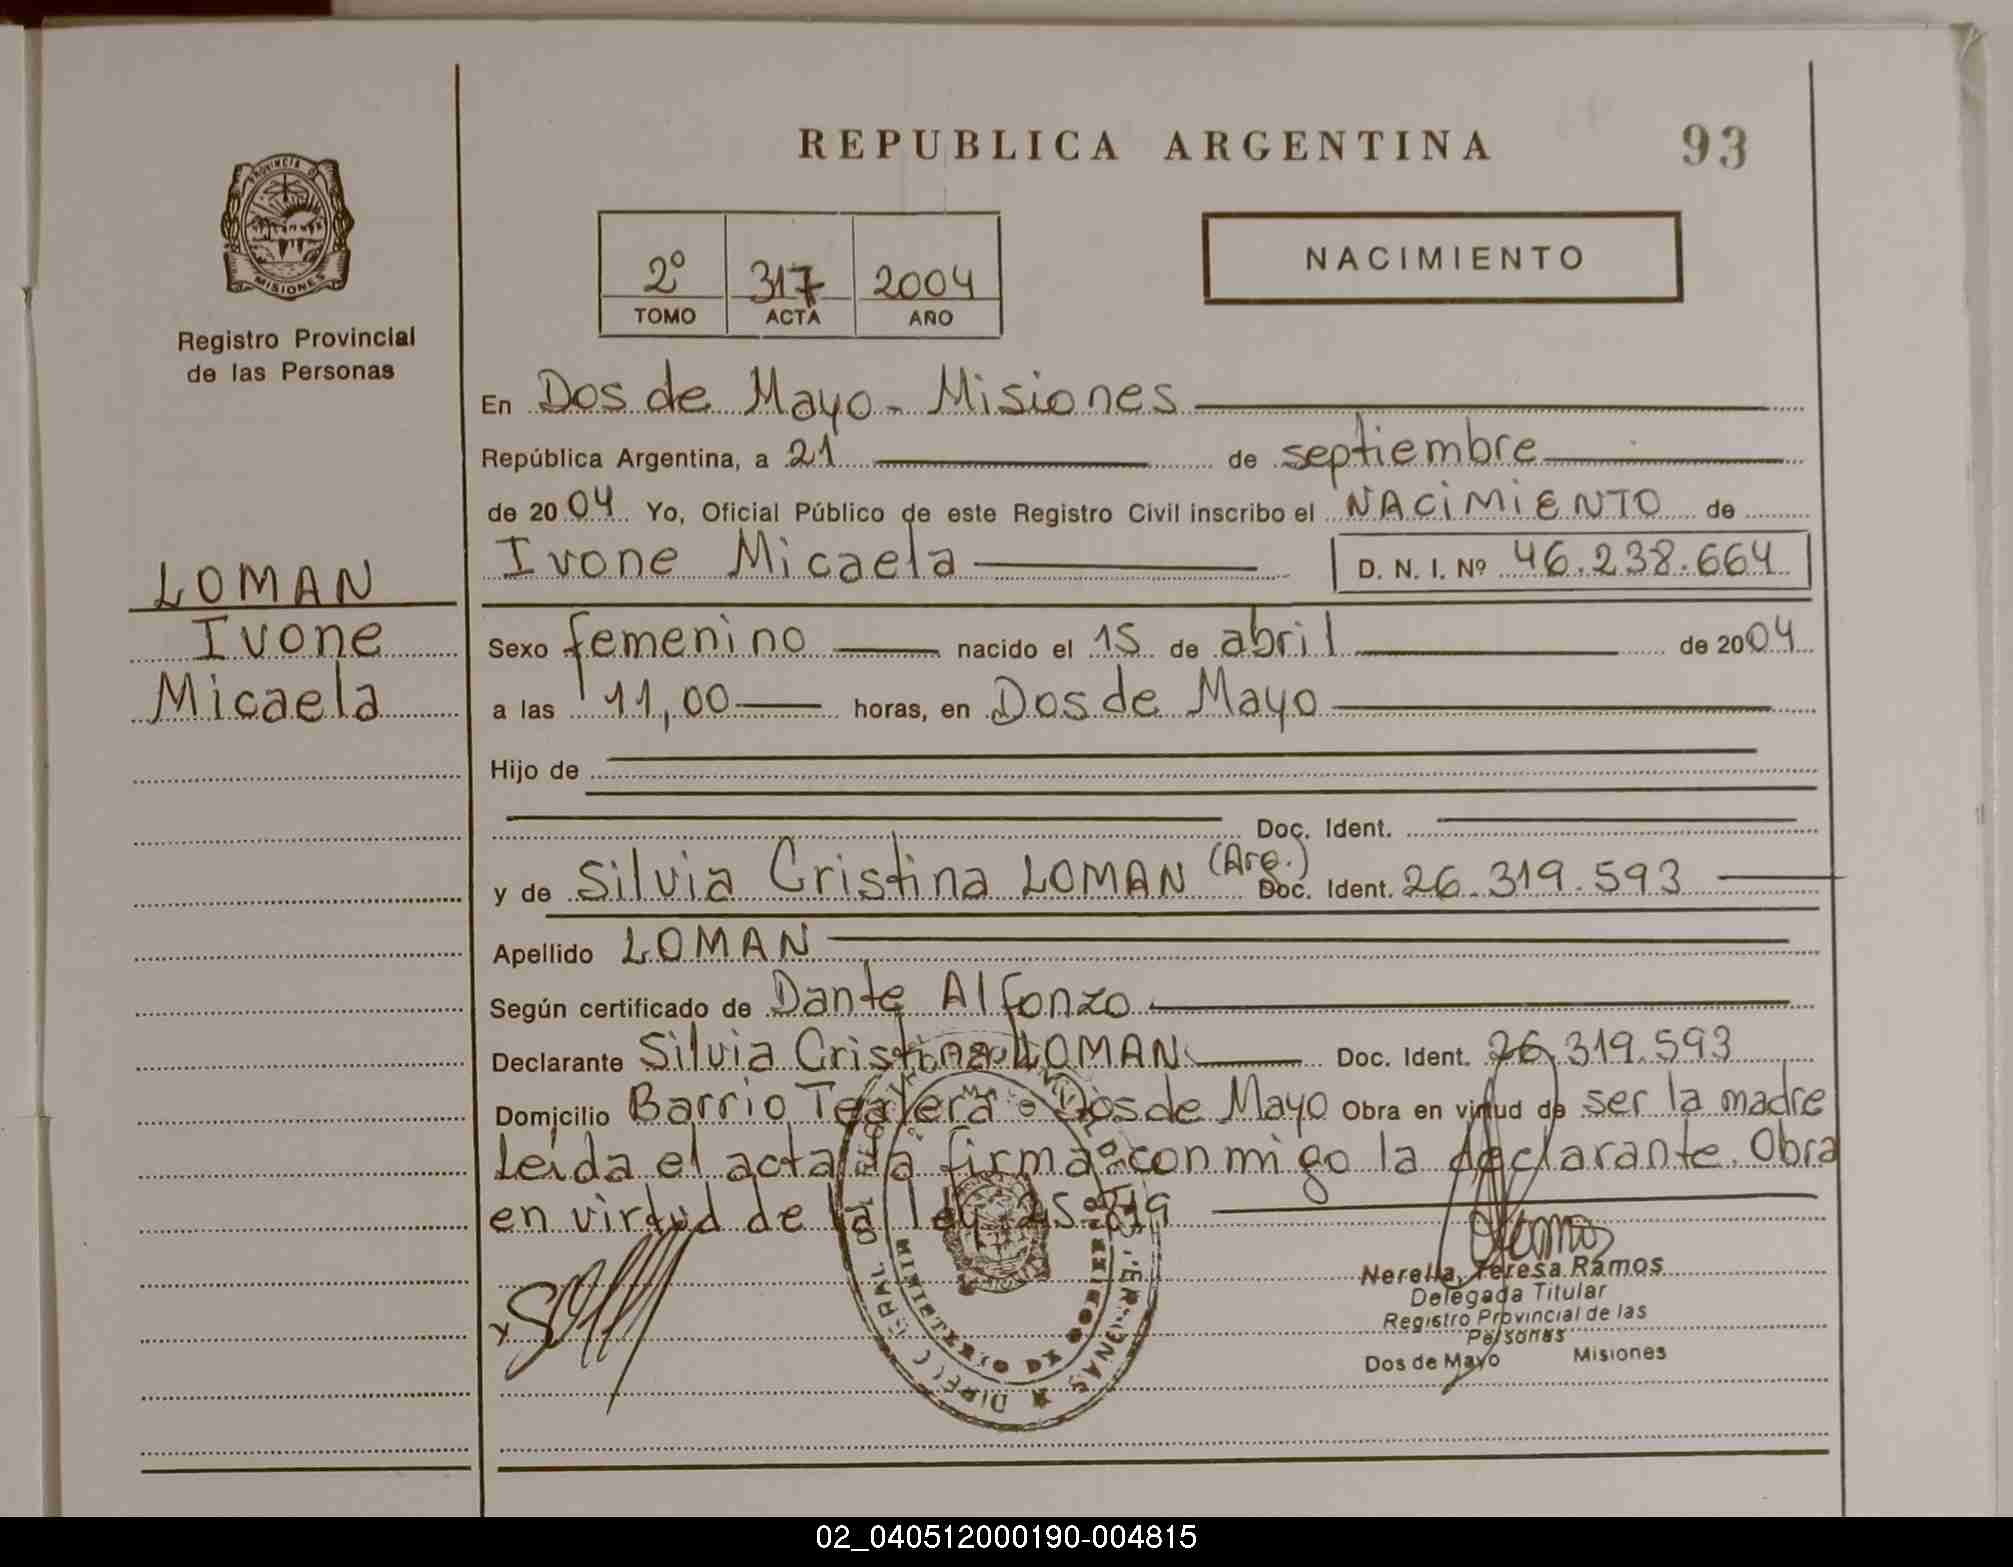 REPUBLICA ARGENTINA
93
PROVINCIA DE
MISIONES
Registro Provincial
de las Personas
2º 317 2004
TOMO ACTA AÑO
NACIMIENTO
LOMAN
Ivone
Micaela
En Dos de Mayo - Misiones
República Argentina, a 21 de septiembre
de 2004 Yo, Oficial Público de este Registro Civil inscribo el NACIMIENTO de
Ivone Micaela D. N. I. Nº 46.238.664
Sexo femenino nacido el 15 de abril de 2004
a las 11,00 horas, en Dos de Mayo
Hijo de
Doc. Ident.
y de Silvia Cristina LOMAN (Arg.) Doc. Ident. 26.319.593
Apellido LOMAN
Según certificado de Dante Alfonzo
Declarante Silvia Cristina LOMAN Doc. Ident. 26.319.593
Domicilio Barrio - Dos de Mayo Obra en virtud de ser la madre
Leída el acta la firma conmigo la declarante. Obra
en virtud de la ley 25.819
Nerella, Teresa Ramos
Delegada Titular
Registro Provincial de las
Personas
Dos de Mayo Misiones
02_040512000190-004815